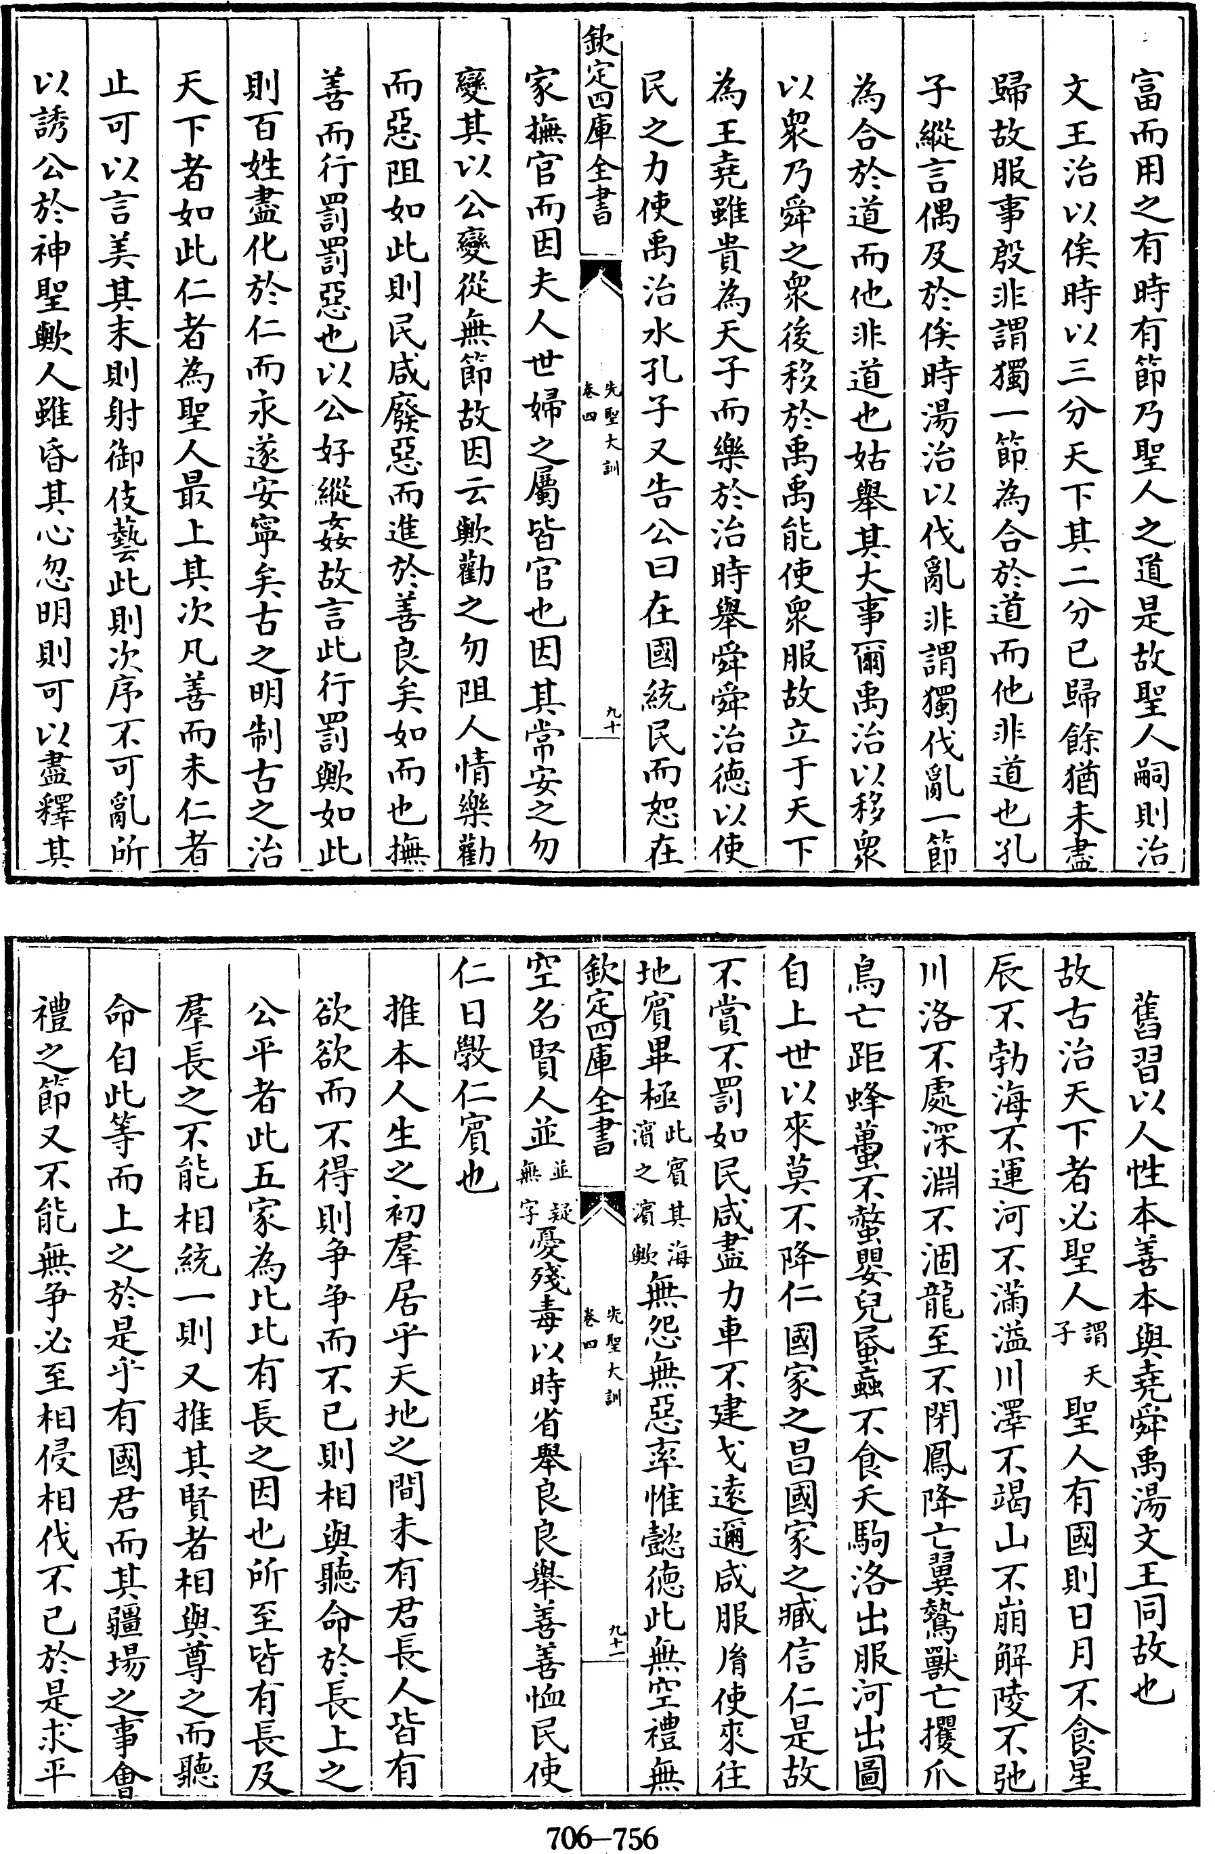 富而用之有時有節乃聖人之道是故聖人嗣則治
文王治以俟時以三分天下其二分已歸餘猶未盡
歸故服事殷非謂獨一節為合於道而他非道也孔
子縱言偶及於俟時湯治以伐亂非謂獨伐亂一節
為合於道而他非道也姑舉其大事爾禹治以移衆
以衆乃舜之衆後移於禹禹能使衆服故立于天下
為王堯雖貴為天子而樂於治時舉舜舜治德以使
民之力使禹治水孔子又告公曰在國統民而恕在
欽定四庫全書
先聖大訓
卷四
九十
家撫官而因夫人世婦之屬皆官也因其常安之勿
變其以公變從無節故因云歟勸之勿阻人情樂勸
而惡阻如此則民咸廢惡而進於善良矣如而也撫
善而行罰罰惡也以公好縱姦故言此行罰歟如此
則百姓盡化於仁而永遂安寧矣古之明制古之治
天下者如此仁者為聖人最上其次凡善而未仁者
止可以言美其末則射御伎藝此則次序不可亂所
以誘公於神聖歟人雖昏其心忽明則可以盡釋其
舊習以人性本善本與堯舜禹湯文王同故也
故古治天下者必聖人謂天子聖人有國則日月不食星
辰不勃海不運河不滿溢川澤不竭山不崩解陵不弛
川洛不處深淵不涸龍至不閉鳳降亡翼鷙獸亡攫爪
鳥亡距蜂蠆不螫嬰兒蟁蝱不食夭駒洛出服河出圖
自上世以來莫不降仁國家之昌國家之臧信仁是故
不賞不罰如民咸盡力車不建戈遠邇咸服胤使來往
地賓畢極此賓其海濱之濱歟無怨無惡率惟懿德此無空禮無
欽定四庫全書
先聖大訓
卷四
九十一
空名賢人並並疑無字憂殘毒以時省舉良良舉善善恤民使
仁日斆仁賓也
推本人生之初羣居乎天地之間未有君長人皆有
欲欲而不得則爭爭而不已則相與聽命於長上之
公平者此五家為比比有長之因也所至皆有長及
羣長之不能相統一則又推其賢者相與尊之而聽
命自此等而上之於是乎有國君而其疆埸之事會
禮之節又不能無爭必至相侵相伐不已於是求平
706—756